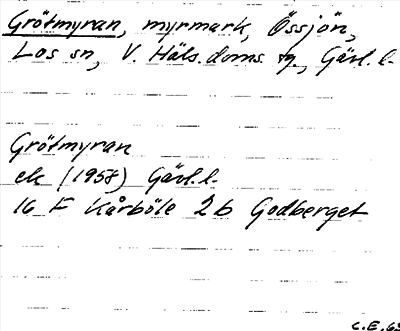 Grötmyran, myrmark, Össjön,
Los sn, V. Häls. doms. sg., Gävl. l.
Grötmyran
ek (1958) Gävl. l.
16 F Kårböle 2 b Godberget
C.E. 63